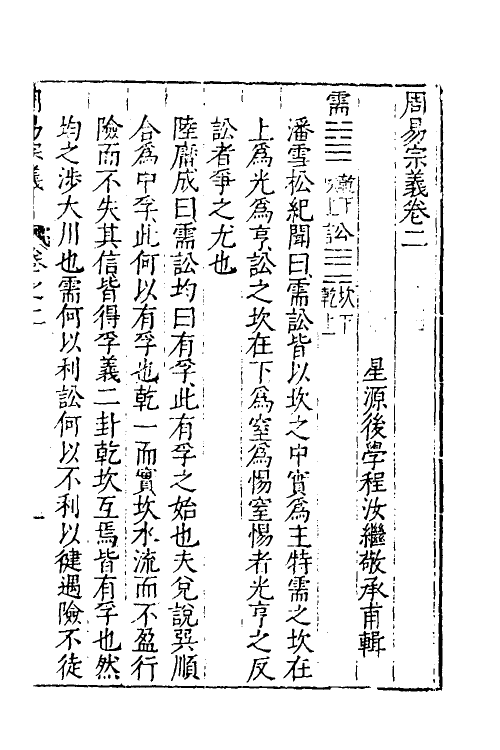 周易宗義卷二
星源後學程汝繼敬承甫輯
需 乾下坎上 訟 坎下乾上
潘雪松紀聞曰需訟皆以坎之中實爲主特需之坎在
上爲光爲亨訟之坎在下爲窒爲惕窒惕者光亨之反
訟者爭之尤也
陸庸成曰需訟均曰有孚此有孚之始也夫兌說巽順
合爲中孚此何以有孚也乾一而實坎水流而不盈行
險而不失其信皆得孚義二卦乾坎互焉皆有孚也然
均之涉大川也需何以利訟何以不利以健遇險不徒
周易宗義 卷之二 一